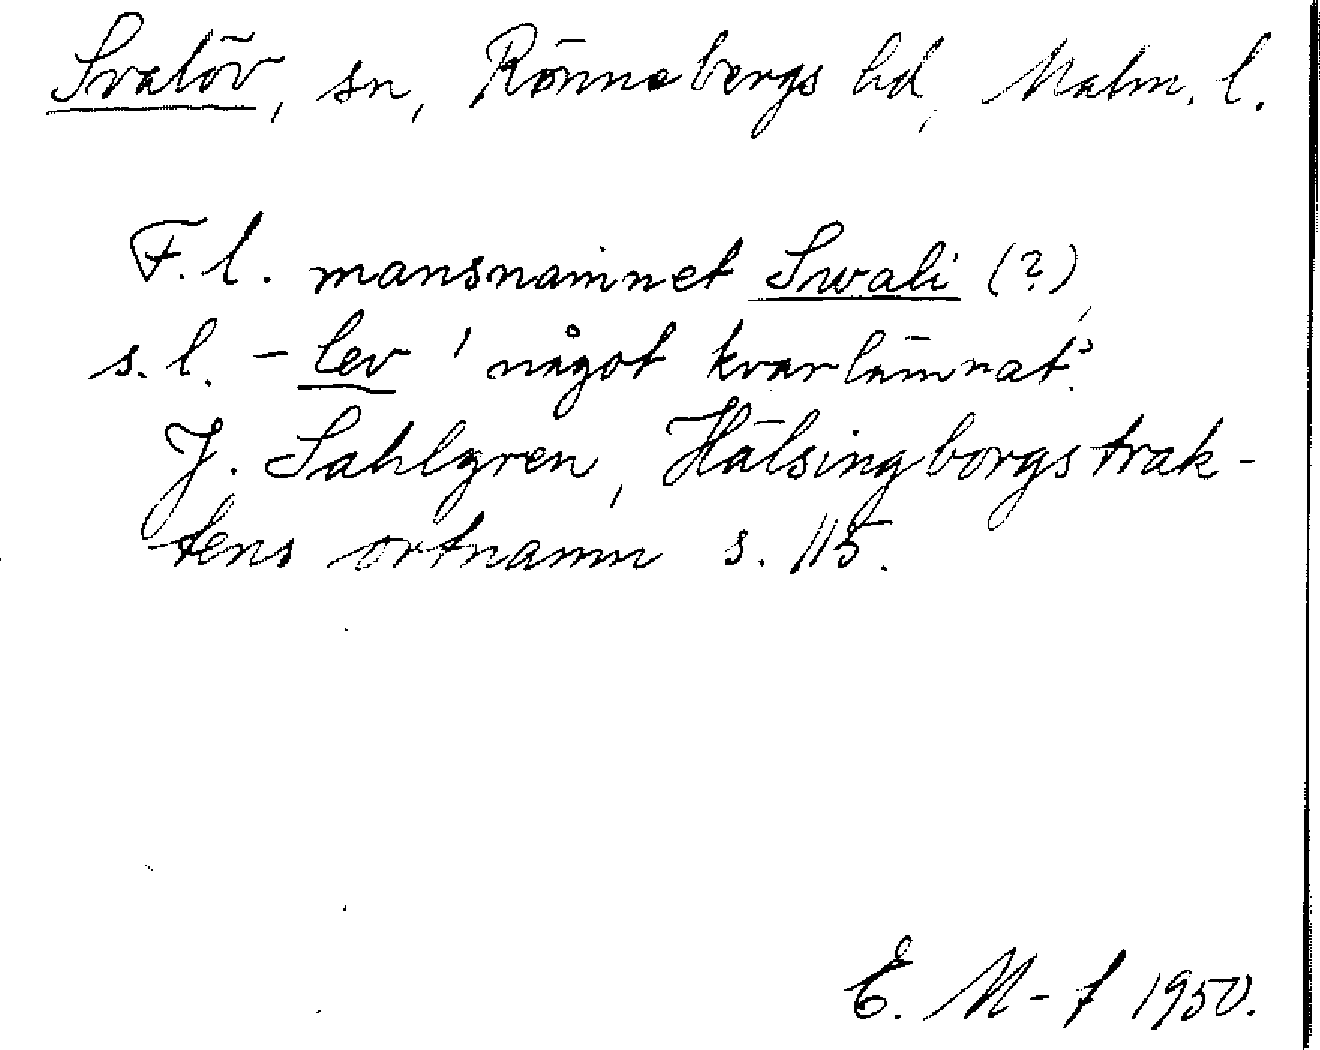 Svalöv, sn, Rönnebergs hd, Malm. l.
F. l. mansnamnet Swali (?),
s. l. - lev 'något kvarlämnat'.
J. Sahlgren, Hälsingborgstrak-
tens ortnamn s. 115.
E. M-f 1950.